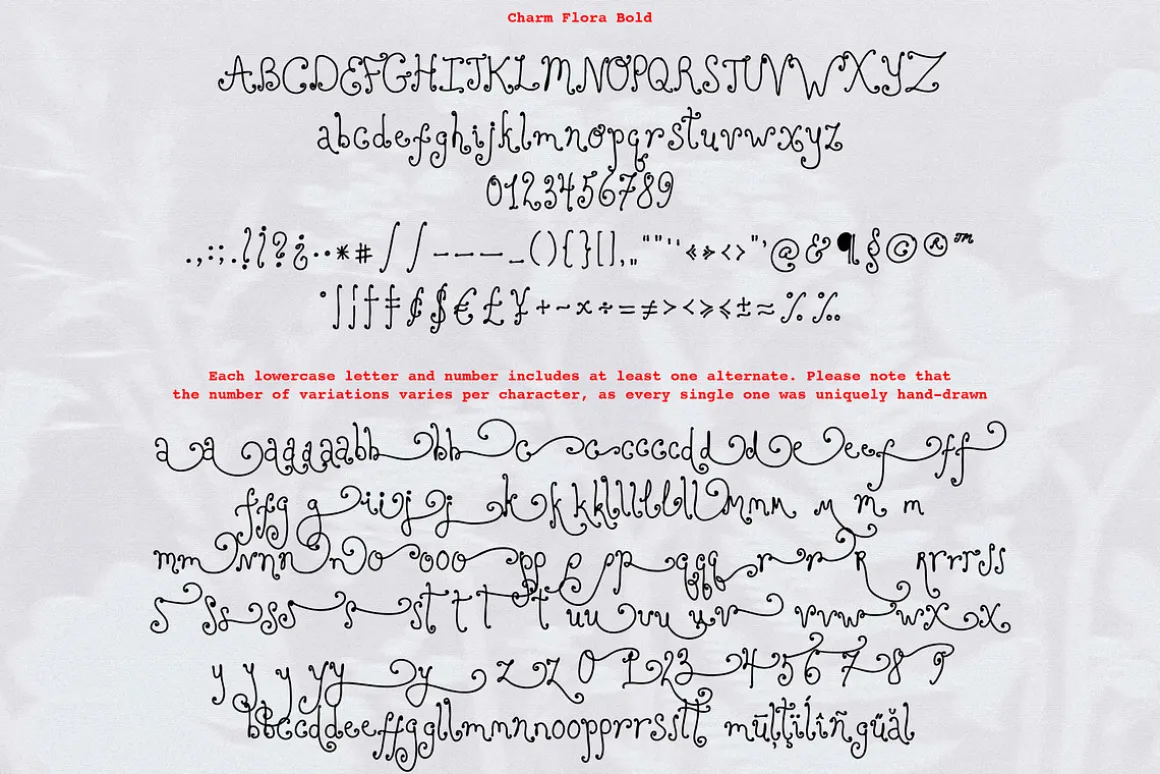 Charm Flora Bold
ABCDEFGHIJKLMNOPQRSTUVWXYZ
abcdefghijklmnopqrstuvwxyz
0123456789
.,:;.!¡?¿··*#/ / - – — _ (){}[],„"“”‘’«»‹›"'@&¶§©®™
°|¦†‡¢$€£¥+−×÷=≠><≥≤±≈%‰
Each lowercase letter and number includes at least one alternate. Please note that
the number of variations varies per character, as every single one was uniquely hand-drawn
a a aaaaabb bb c c ccccdd d e eef ff
ffg g iij j k k kklllllll mmm m m m
mm nnn n o ooo pp p pp qqq r r R RrrrSS
s ss ss s st t t t uu uu y v vvw wx x
y y y yy y z z 0 1 2 3 4 5 6 7 8 9
bbccddeeffggllmmnnoopprrsstt müļţïlîñgüăl